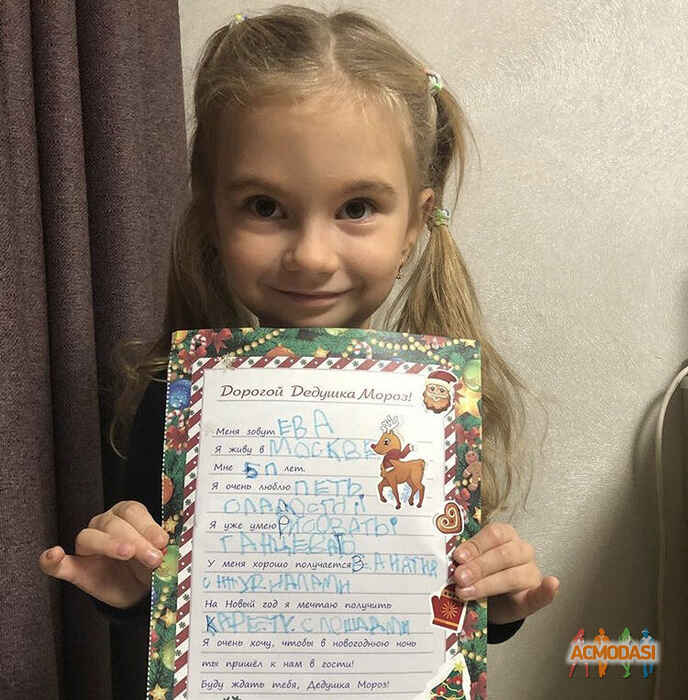 Дорогой Дедушка Мороз!
Меня зовут ЕВА
Я живу в МОСКВЕ
Мне 5 П лет.
Я очень люблю ПЕТЬ
Я уже умею РИСОВАТЬ!
У меня хорошо получается
На Новый год я мечтаю получить
КАРЕТУ С ЛОШАДМИ
Я очень хочу, чтобы в новогоднюю ночь
ты пришёл к нам в гости!
Буду ждать тебя, Дедушка Мороз!
ACMODASI